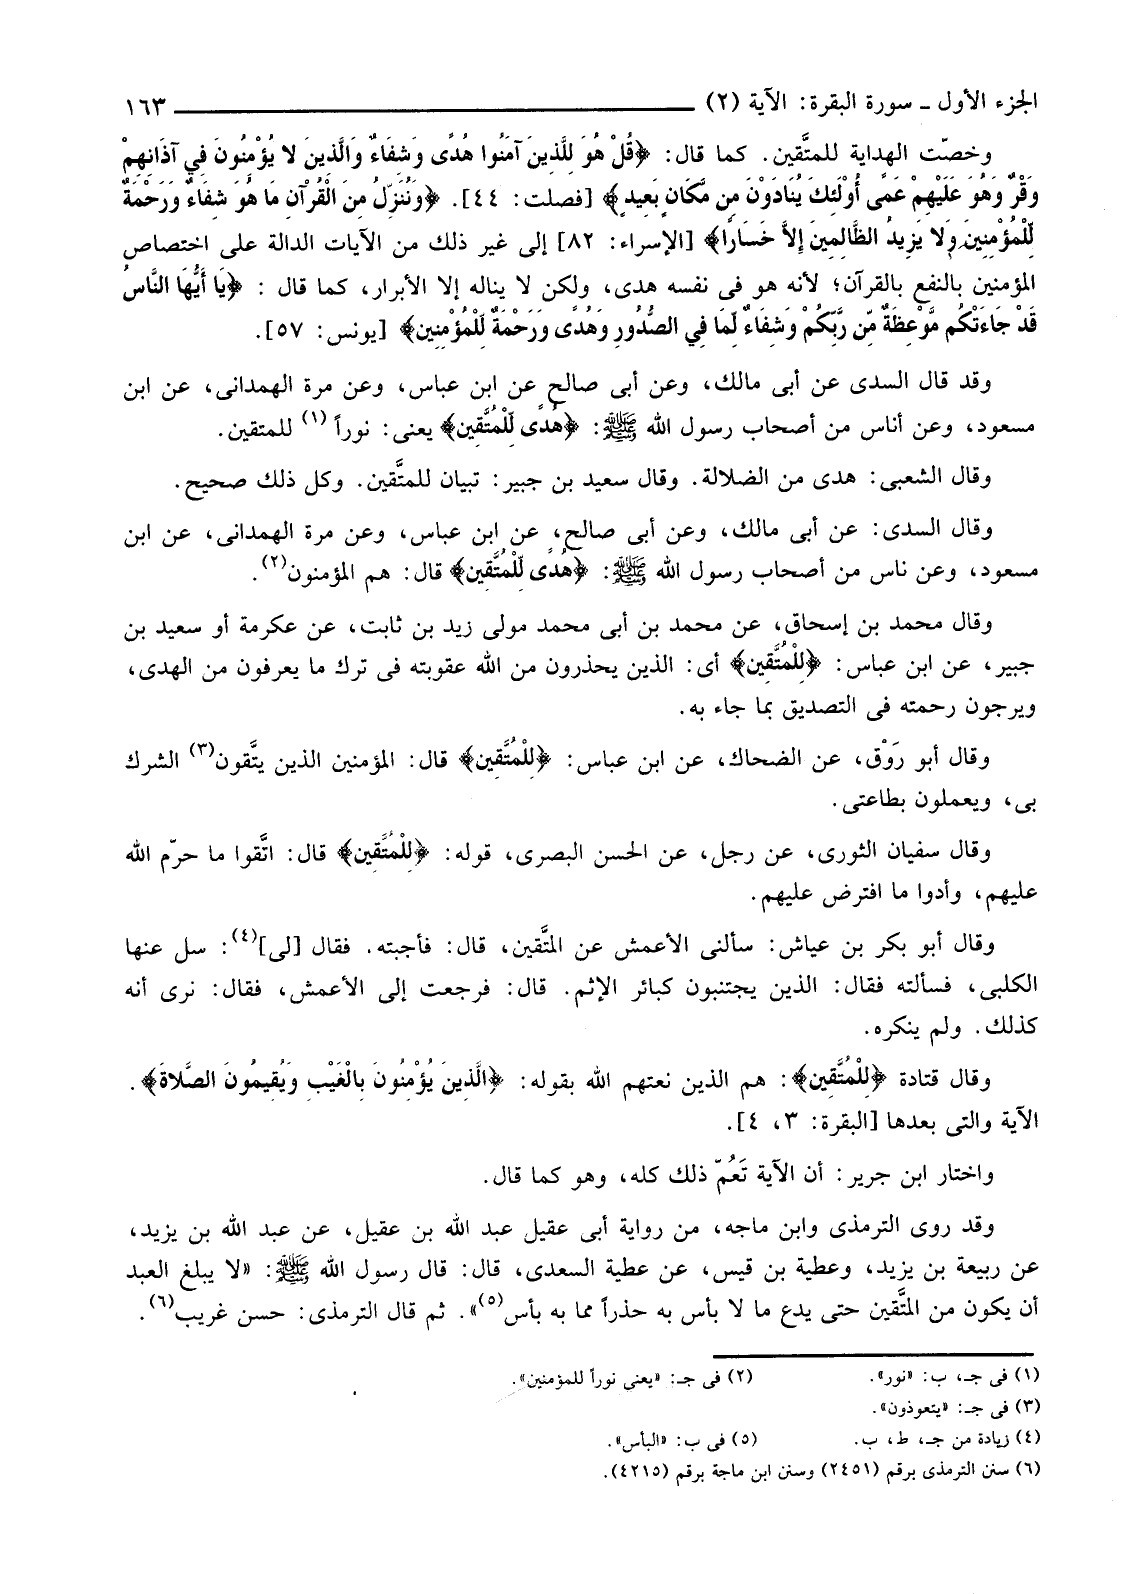 الجزء الأول ـ سورة البقرة: الآية (٢) ١٦٣
وخصّت الهداية للمتَّقين. كما قال: ﴿قُلْ هُوَ لِلَّذِينَ آمَنُوا هُدًى وَشِفَاءٌ وَالَّذِينَ لا يُؤْمِنُونَ فِي آذَانِهِمْ
وَقْرٌ وَهُوَ عَلَيْهِمْ عَمًى أُوْلَئِكَ يُنَادَوْنَ مِن مَّكَانٍ بَعِيدٍ﴾ [فصلت: ٤٤]. ﴿وَنُنَزِّلُ مِنَ الْقُرْآنِ مَا هُوَ شِفَاءٌ وَرَحْمَةٌ
لِّلْمُؤْمِنِينَ وَلا يَزِيدُ الظَّالِمِينَ إِلاَّ خَسَارًا﴾ [الإسراء: ٨٢] إلى غير ذلك من الآيات الدالة على اختصاص
المؤمنين بالنفع بالقرآن؛ لأنه هو فى نفسه هدى، ولكن لا يناله إلا الأبرار، كما قال : ﴿يَا أَيُّهَا النَّاسُ
قَدْ جَاءَتْكُم مَّوْعِظَةٌ مِّن رَّبِّكُمْ وَشِفَاءٌ لِّمَا فِي الصُّدُورِ وَهُدًى وَرَحْمَةٌ لِّلْمُؤْمِنِين﴾ [يونس: ٥٧].
وقد قال السدى عن أبى مالك، وعن أبى صالح عن ابن عباس، وعن مرة الهمدانى، عن ابن
مسعود، وعن أناس من أصحاب رسول الله ﷺ: ﴿هُدًى لِّلْمُتَّقِين﴾ يعنى: نوراً (١) للمتقين.
وقال الشعبى: هدى من الضلالة. وقال سعيد بن جبير: تبيان للمتَّقين. وكل ذلك صحيح.
وقال السدى: عن أبى مالك، وعن أبى صالح، عن ابن عباس، وعن مرة الهمدانى، عن ابن
مسعود، وعن ناس من أصحاب رسول الله ﷺ: ﴿هُدًى لِّلْمُتَّقِين﴾ قال: هم المؤمنون(٢).
وقال محمد بن إسحاق، عن محمد بن أبى محمد مولى زيد بن ثابت، عن عكرمة أو سعيد بن
جبير، عن ابن عباس: ﴿لِلْمُتَّقِين﴾ أى: الذين يحذرون من الله عقوبته فى ترك ما يعرفون من الهدى،
ويرجون رحمته فى التصديق بما جاء به.
وقال أبو رَوْق، عن الضحاك، عن ابن عباس: ﴿لِلْمُتَّقِين﴾ قال: المؤمنين الذين يتَّقون(٣) الشرك
بى، ويعملون بطاعتى.
وقال سفيان الثورى، عن رجل، عن الحسن البصرى، قوله: ﴿لِلْمُتَّقِين﴾ قال: اتَّقوا ما حرّم الله
عليهم، وأدوا ما افترض عليهم.
وقال أبو بكر بن عياش: سألنى الأعمش عن المتَّقين، قال: فأجبته. فقال [لى](٤): سل عنها
الكلبى، فسألته فقال: الذين يجتنبون كبائر الإثم. قال: فرجعت إلى الأعمش، فقال: نرى أنه
كذلك. ولم ينكره.
وقال قتادة ﴿لِلْمُتَّقِين﴾: هم الذين نعتهم الله بقوله: ﴿الَّذِينَ يُؤْمِنُونَ بِالْغَيْبِ وَيُقِيمُونَ الصَّلاةَ﴾.
الآية والتى بعدها [البقرة: ٣، ٤].
واختار ابن جرير: أن الآية تَعُمّ ذلك كله، وهو كما قال.
وقد روى الترمذى وابن ماجه، من رواية أبى عقيل عبد الله بن عقيل، عن عبد الله بن يزيد،
عن ربيعة بن يزيد، وعطية بن قيس، عن عطية السعدى، قال: قال رسول الله ﷺ: «لا يبلغ العبد
أن يكون من المتَّقين حتى يدع ما لا بأس به حذراً مما به بأس(٥)». ثم قال الترمذى: حسن غريب(٦).
(١) فى جـ، ب: «نور». (٢) فى جـ: «يعنى نوراً للمؤمنين».
(٣) فى جـ: «يتعوذون».
(٤) زيادة من جـ، ط، ب. (٥) فى ب: «البأس».
(٦) سنن الترمذى برقم (٢٤٥١) وسنن ابن ماجة برقم (٤٢١٥).